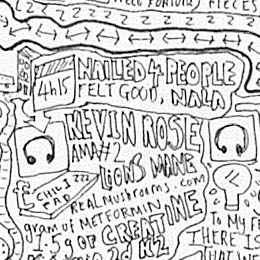 PIECES
Z Z Z Z Z Z Z
4h15
NAILED 4 PEOPLE
FELT GOOD, NALA
KEVIN ROSE
AMA #2
LIONS MANE
CHILI PAD
REALMUSHROOMS.COM
gram of METFORMIN
1.5g OF CREATINE
K2
TO MY F
THERE IS